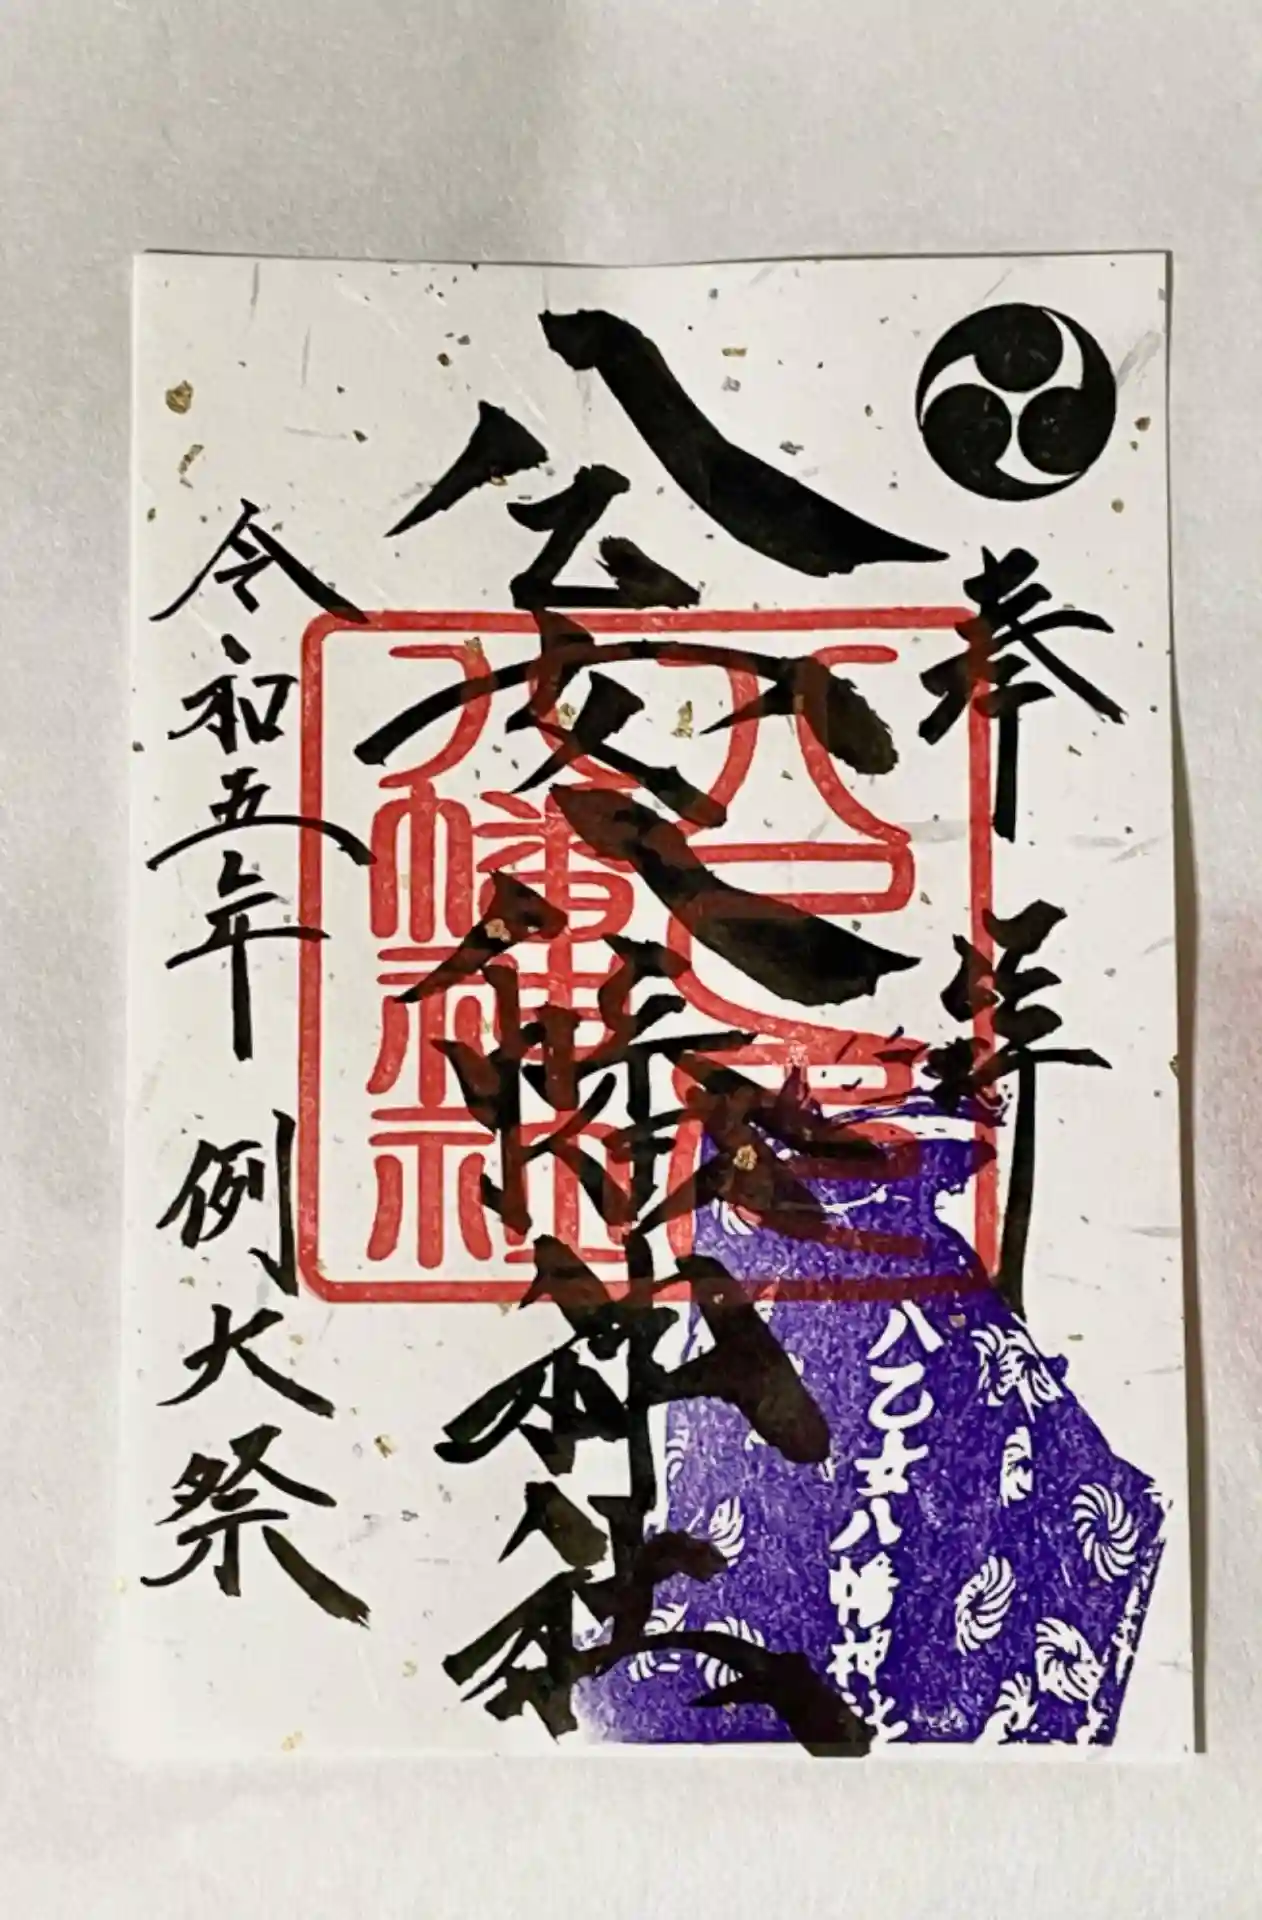 奉拝
八乙女八幡神社
八乙女八幡神社
八乙女八幡神社
令和五年 例大祭